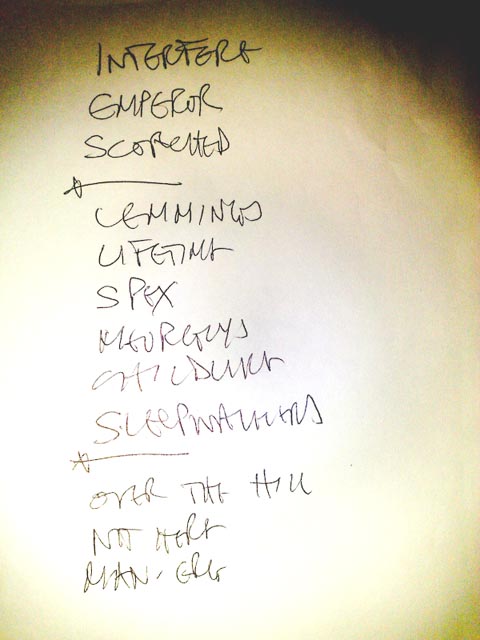 INTERFERE
EMPEROR
SCORCHED
LEMMINGS
LIFETIME
SPEX
MEURGLYS
CHILDLIKE
SLEEPWALKERS
OVER THE HILL
NOT HERE
MAN-ERG